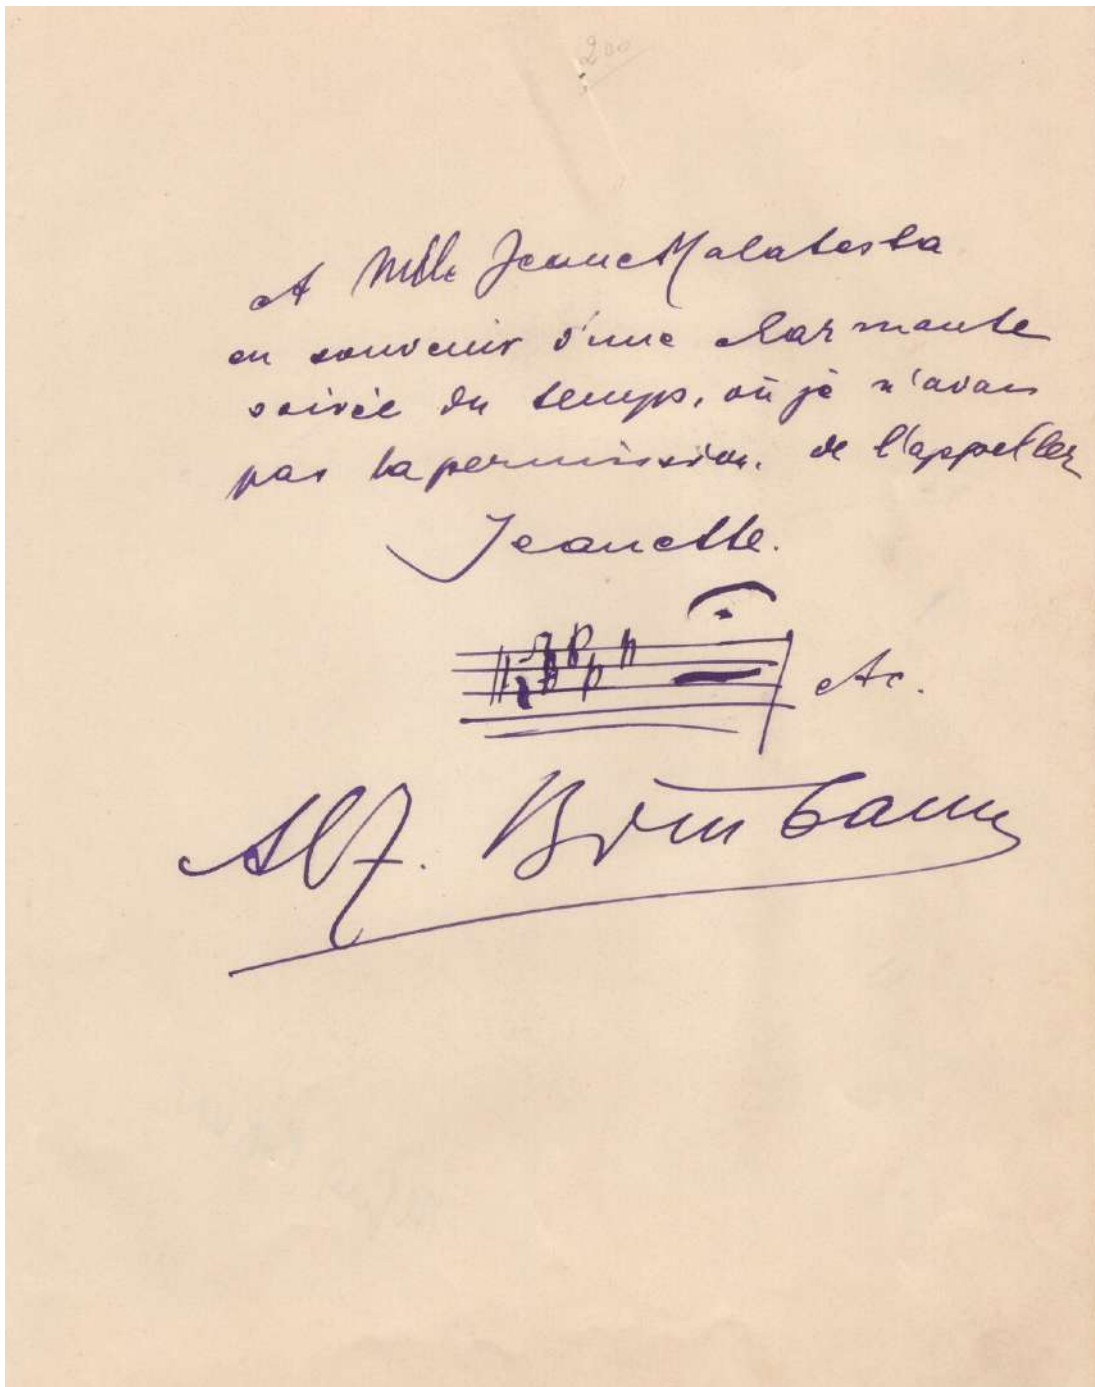 200
A Mlle Jeanne Malatesta
en souvenir d'une charmante
soirée du temps, où je n'avais
pas la permission. de l'appeller
Jeanette.
etc.
Alf.